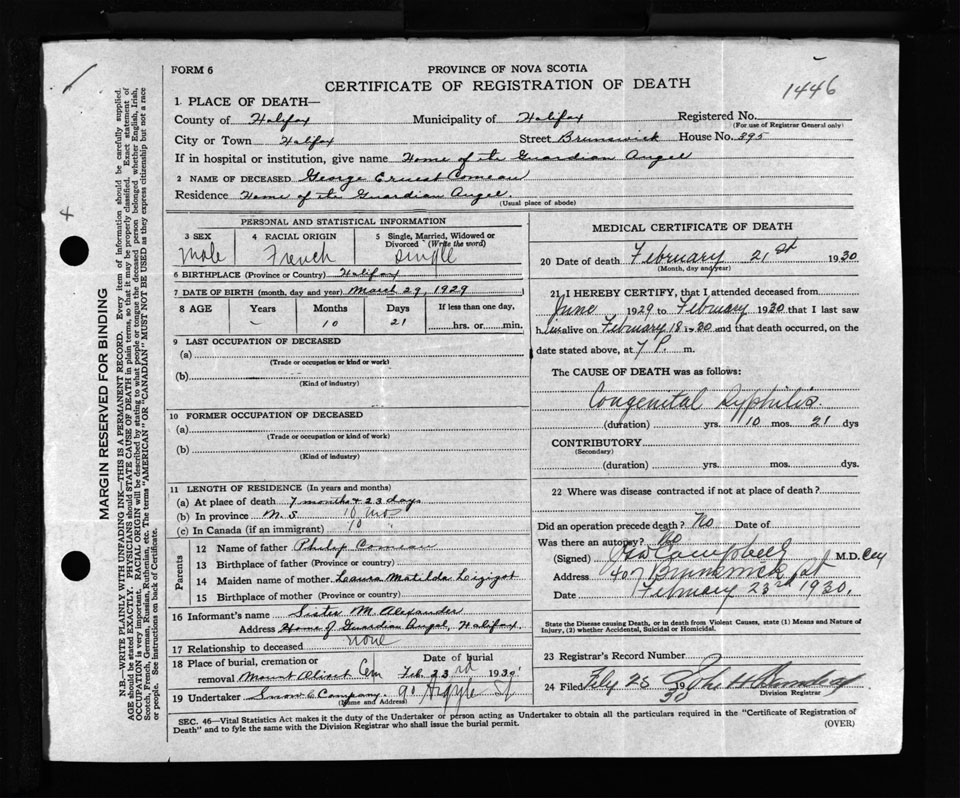 FORM 6
PROVINCE OF NOVA SCOTIA
CERTIFICATE OF REGISTRATION OF DEATH
1446
1 PLACE OF DEATH—
County of Halifax Municipality of Halifax Registered No.
(For use of Registrar General only)
City or Town Halifax Street Brunswick House No. 395
If in hospital or institution, give name Home of the Guardian Angel
2 NAME OF DECEASED George Ernest Comeau
Residence Home of the Guardian Angel.
(Usual place of abode)
PERSONAL AND STATISTICAL INFORMATION
3 SEX 4 RACIAL ORIGIN 5 Single, Married, Widowed or Divorced (Write the word)
Male French Single
6 BIRTHPLACE (Province or Country) Halifax
7 DATE OF BIRTH (month, day and year) March 29, 1929
8 AGE Years Months Days If less than one day,
– 10 21 hrs. or min.
9 LAST OCCUPATION OF DECEASED
(a)
(Trade or occupation or kind of work)
(b)
(Kind of industry)
10 FORMER OCCUPATION OF DECEASED
(a)
(Trade or occupation or kind of work)
(b)
(Kind of industry)
11 LENGTH OF RESIDENCE (In years and months)
(a) At place of death 7 months & 23 days
(b) In province 10 mos
(c) In Canada (if an immigrant) 10 "
Parents
12 Name of father Philip Comeau
13 Birthplace of father (Province or Country)
14 Maiden name of mother Laura Matilda
15 Birthplace of mother (Province or country)
16 Informant's name Sister M. Alexander
Address Home of Guardian Angel, Halifax.
17 Relationship to deceased none
18 Place of burial, cremation or removal Mount Olivet Cem Date of burial Feb. 23rd 1930
19 Undertaker Snow & Company. 90 Argyle St
(Name and Address)
MEDICAL CERTIFICATE OF DEATH
20 Date of death February 21st 1930
(Month, day and year)
21 I HEREBY CERTIFY, that I attended deceased from
June 1929 to February 1930 that I last saw
him alive on February 18 1930 and that death occurred, on the
date stated above, at 7 P. m.
The CAUSE OF DEATH was as follows:
Congenital Syphilis.
(duration) yrs. 10 mos. 21 dys
CONTRIBUTORY
(Secondary)
(duration) yrs. mos. dys.
22 Where was disease contracted if not at place of death?
Did an operation precede death? No Date of
Was there an autopsy? No
(Signed) Campbell M.D.
Address 407 Brunswick St
Date February 23rd 1930.
State the Disease causing Death, or in death from Violent Causes, state (1) Means and Nature of
Injury, (2) whether Accidental, Suicidal or Homicidal.
23 Registrar's Record Number
24 Filed Feby 25 1930 John H
Division Registrar
SEC. 46—Vital Statistics Act makes it the duty of the Undertaker or person acting as Undertaker to obtain all the particulars required in the "Certificate of Registration of
Death" and to fyle the same with the Division Registrar who shall issue the burial permit.
(OVER)
MARGIN RESERVED FOR BINDING
N.B.—WRITE PLAINLY WITH UNFADING INK—THIS IS A PERMANENT RECORD. Every item of information should be carefully supplied.
AGE should be stated EXACTLY. PHYSICIANS should STATE CAUSE OF DEATH in plain terms, so that it may be properly classified. Exact statement of
OCCUPATION is very important. RACIAL ORIGIN will be described by stating to what people or tongue the deceased person belonged whether English, Irish,
Scotch, French, German, Russian, Ruthenian, etc. The terms "AMERICAN" OR "CANADIAN" MUST NOT BE USED as they express citizenship but not a race
or people. See instructions on back of Certificate.